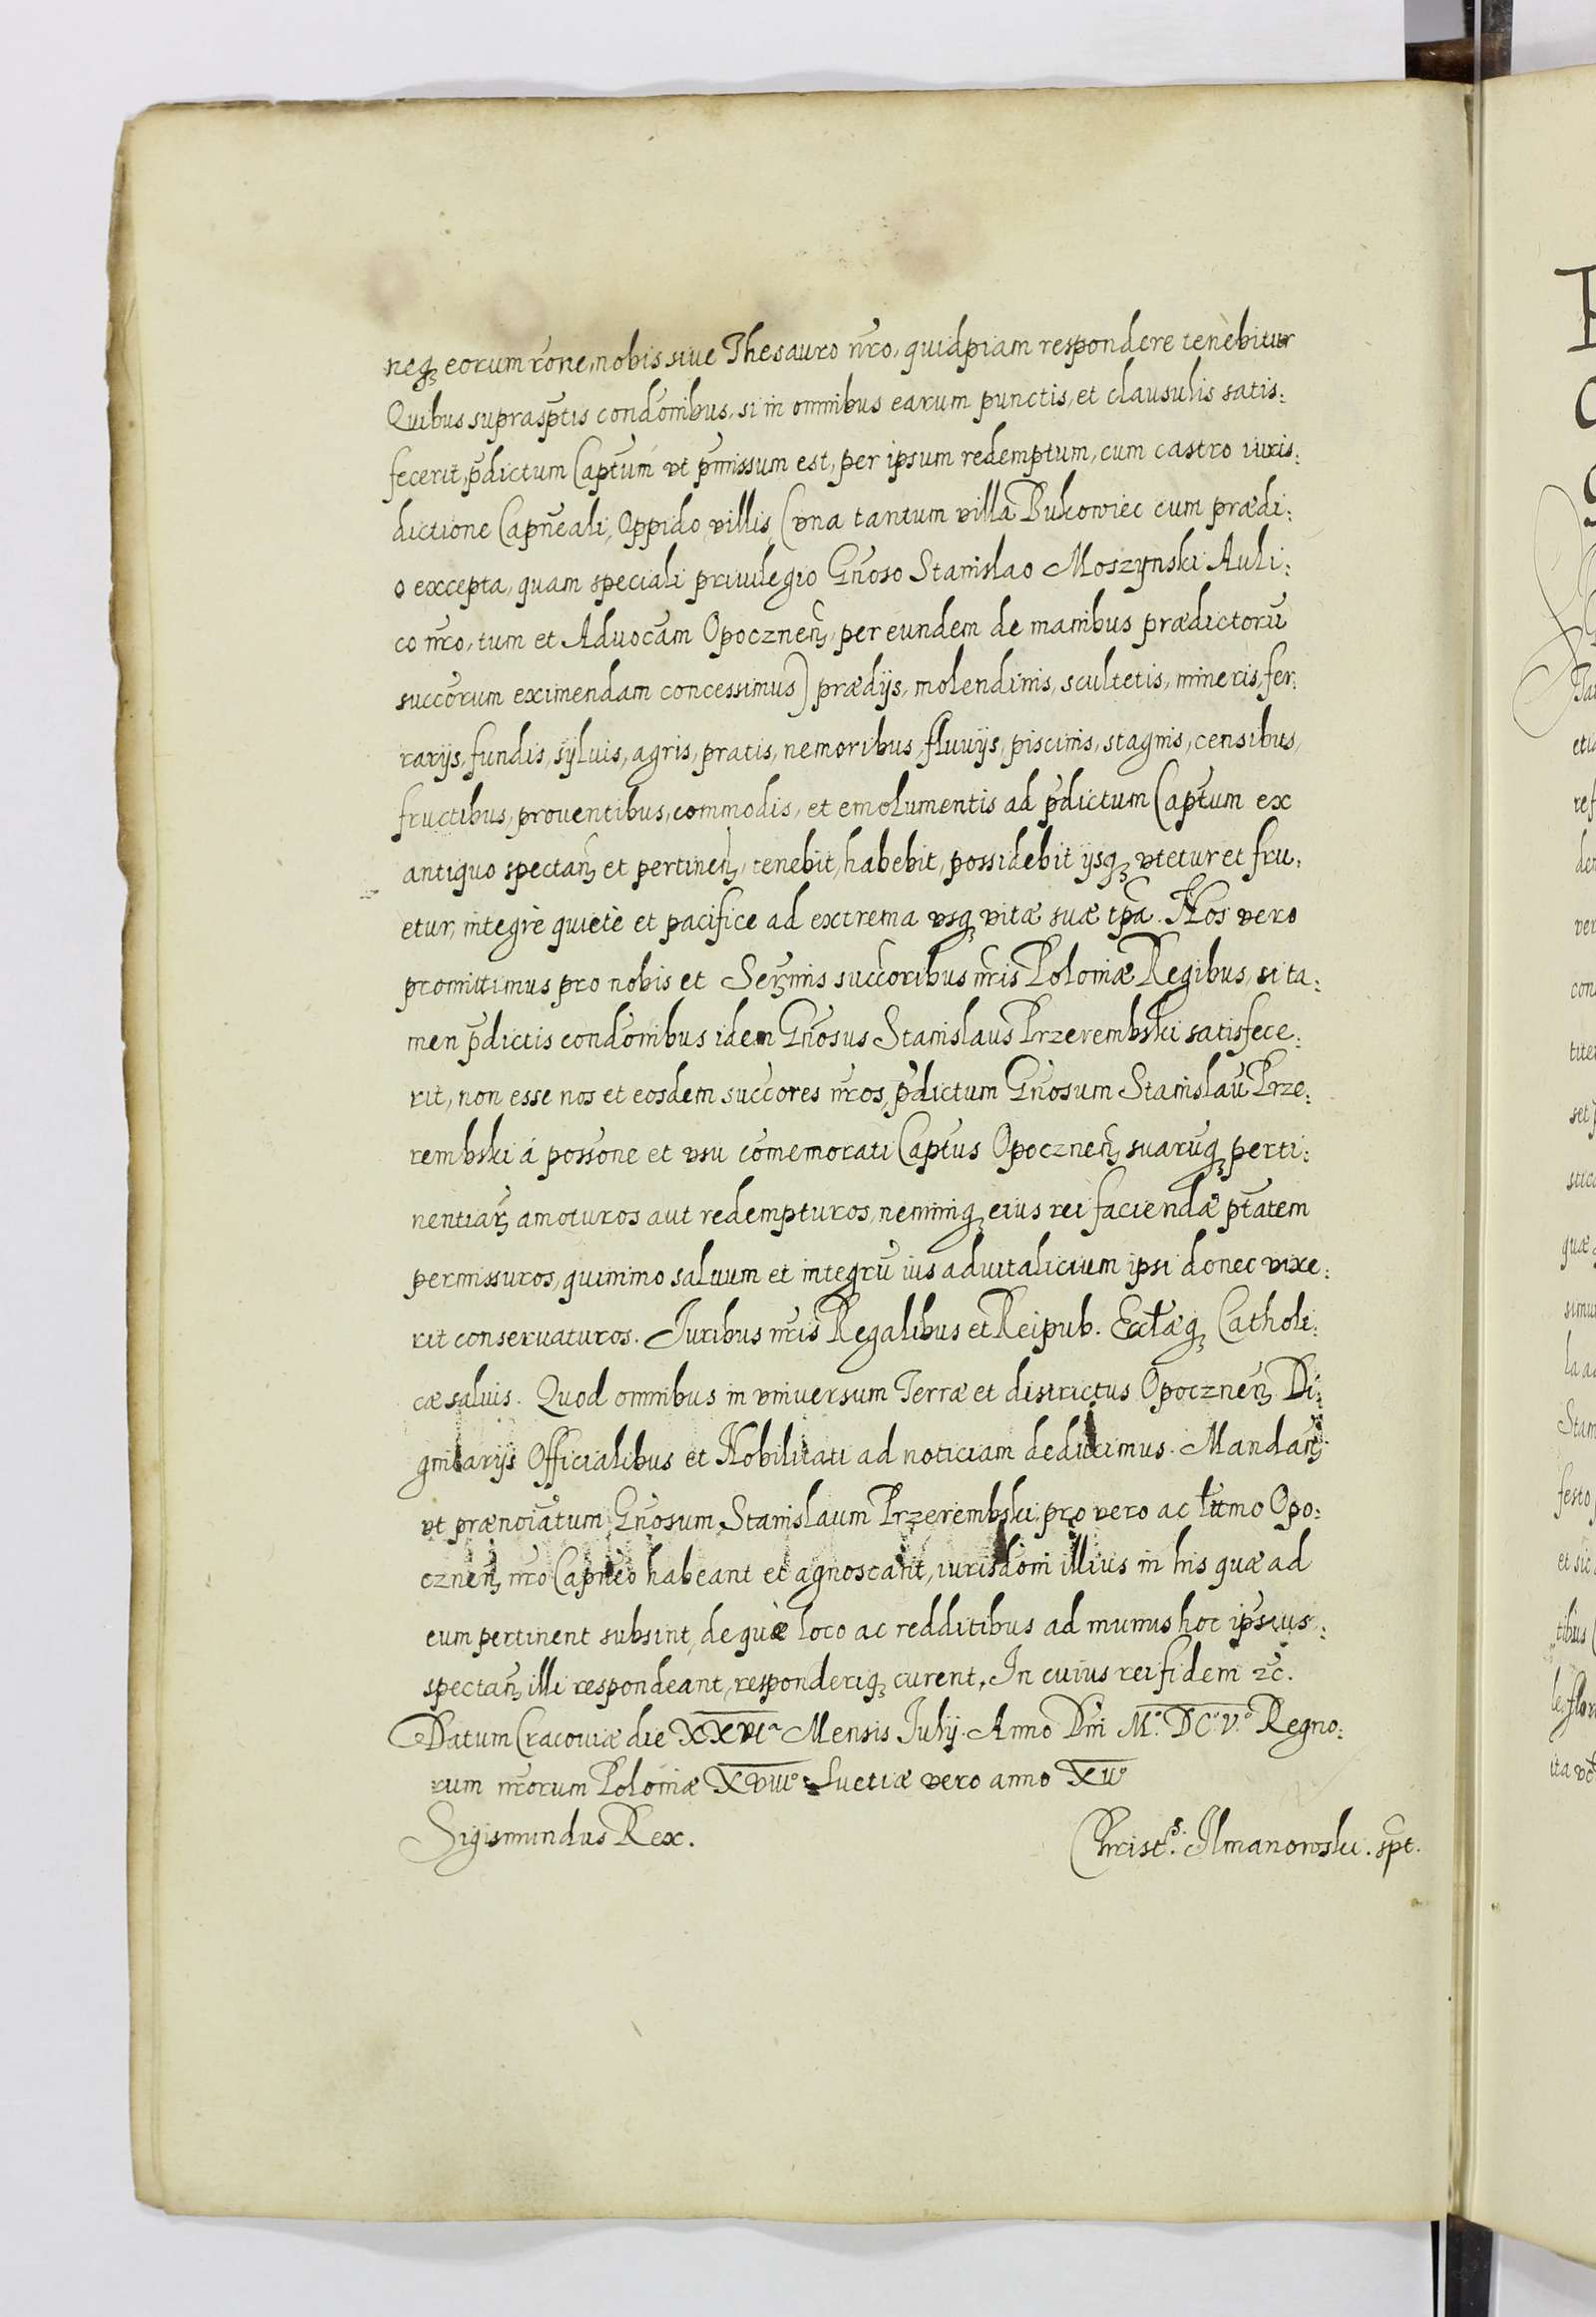 neqꝫ eorum rone, nobis siue Thesauro nr̃o, quidpiam respondere tenèbitur
Quibus suprasp̃tis condõnibus, si in omnibus earum punctis, et clausulis satis:
fecerit, p̃dictum Captum̃ vt p̃missum est, per ipsum redemptum, cum castro iuris:
dictione Capñeali, Oppido, villis, (vna tantum villa Bukowiec cum prædi:
o excepta, quam speciali priuilegio Gñoso Stanislao Moszynski Auli:
co nr̃o, tum et Aduocãm Opocznen̄, per eundem de manibus prædictorũ
succõrum eximendam concessimus) prædijs, molendinis, scultetis, mineris, fer:
rarijs, fundis, syluis, agris, pratis, nemoribus, fluuijs, piscinis, stagnis, censibus,
fructibus, prouentibus, commodis, et emolumentis ad p̃dictum Captũm ex
antiquo spectan̄ et pertinen̄, tenebit, habebit, possidebit ijsqꝫ vtetur et fru:
etur, integrè quietè et pacifice ad extrema vsqꝫ vitæ suæ tp̃a. Nos vero
promittimus pro nobis et Serꝫmis succõribus nr̃is Poloniæ Regibus, si ta:
men p̃dictis condõnibus idem Gñosus Stanislaus Przerembski satisfece:
rit, non esse nos et eosdem succõres nr̃os, p̃dictum Gñosum Stanislaũ Prze:
rembski á possõne et vsu cõmemorati Captũs Opocznen̄, suarũqꝫ perti:
nentiarꝫ amoturos aut redempturos, neminiqꝫ eius rei faciendæ ptãtem
permissuros, quinimo saluum et integrũ ius aduitalicium ipsi donec vixe:
rit conseruaturos. Juribus nr̃is Regalibus et Reipub. Eccłæqꝫ Catholi:
cæ saluis. Quod omnibus in vniuersum Terræ et districtus Opocznen̄ Di:
gnitarijs Officialibus et Nobilitati ad noticiam deducimus. Mandan̄
vt prænoiãtum Gñosum Stanislaum Przerembski pro vero ac łitmo Opo:
cznen̄ nr̃o Capñeo habeant et agnoscant, iurisdõni illius in his quæ ad
eum pertinent subsint, de què loco ac redditibus ad munus hoc ipsius
spectan̄ illi respondeant, responderiqꝫ curent. In cuius rei fidem ꝛc̃.
Datum Cracouiæ die XXVIᵃ Mensis Julij. Anno Dñi M.° DC.° V.° Regno:
rum nr̃orum Poloniæ XVIII° Suetiæ vero anno XII°
Sigismundus Rex.
Christ.ˢ Ilmanowski. spt.